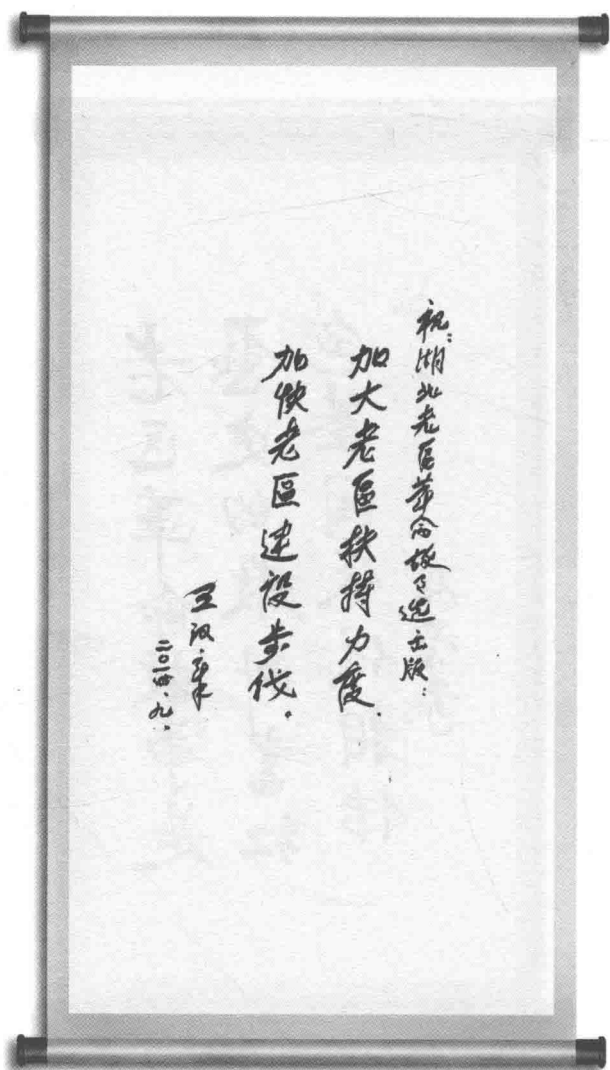 祝湖北老区革命故事选出版：
加大老區扶持力度.
加快老區建設步伐。
王汉章
二〇一四.九.